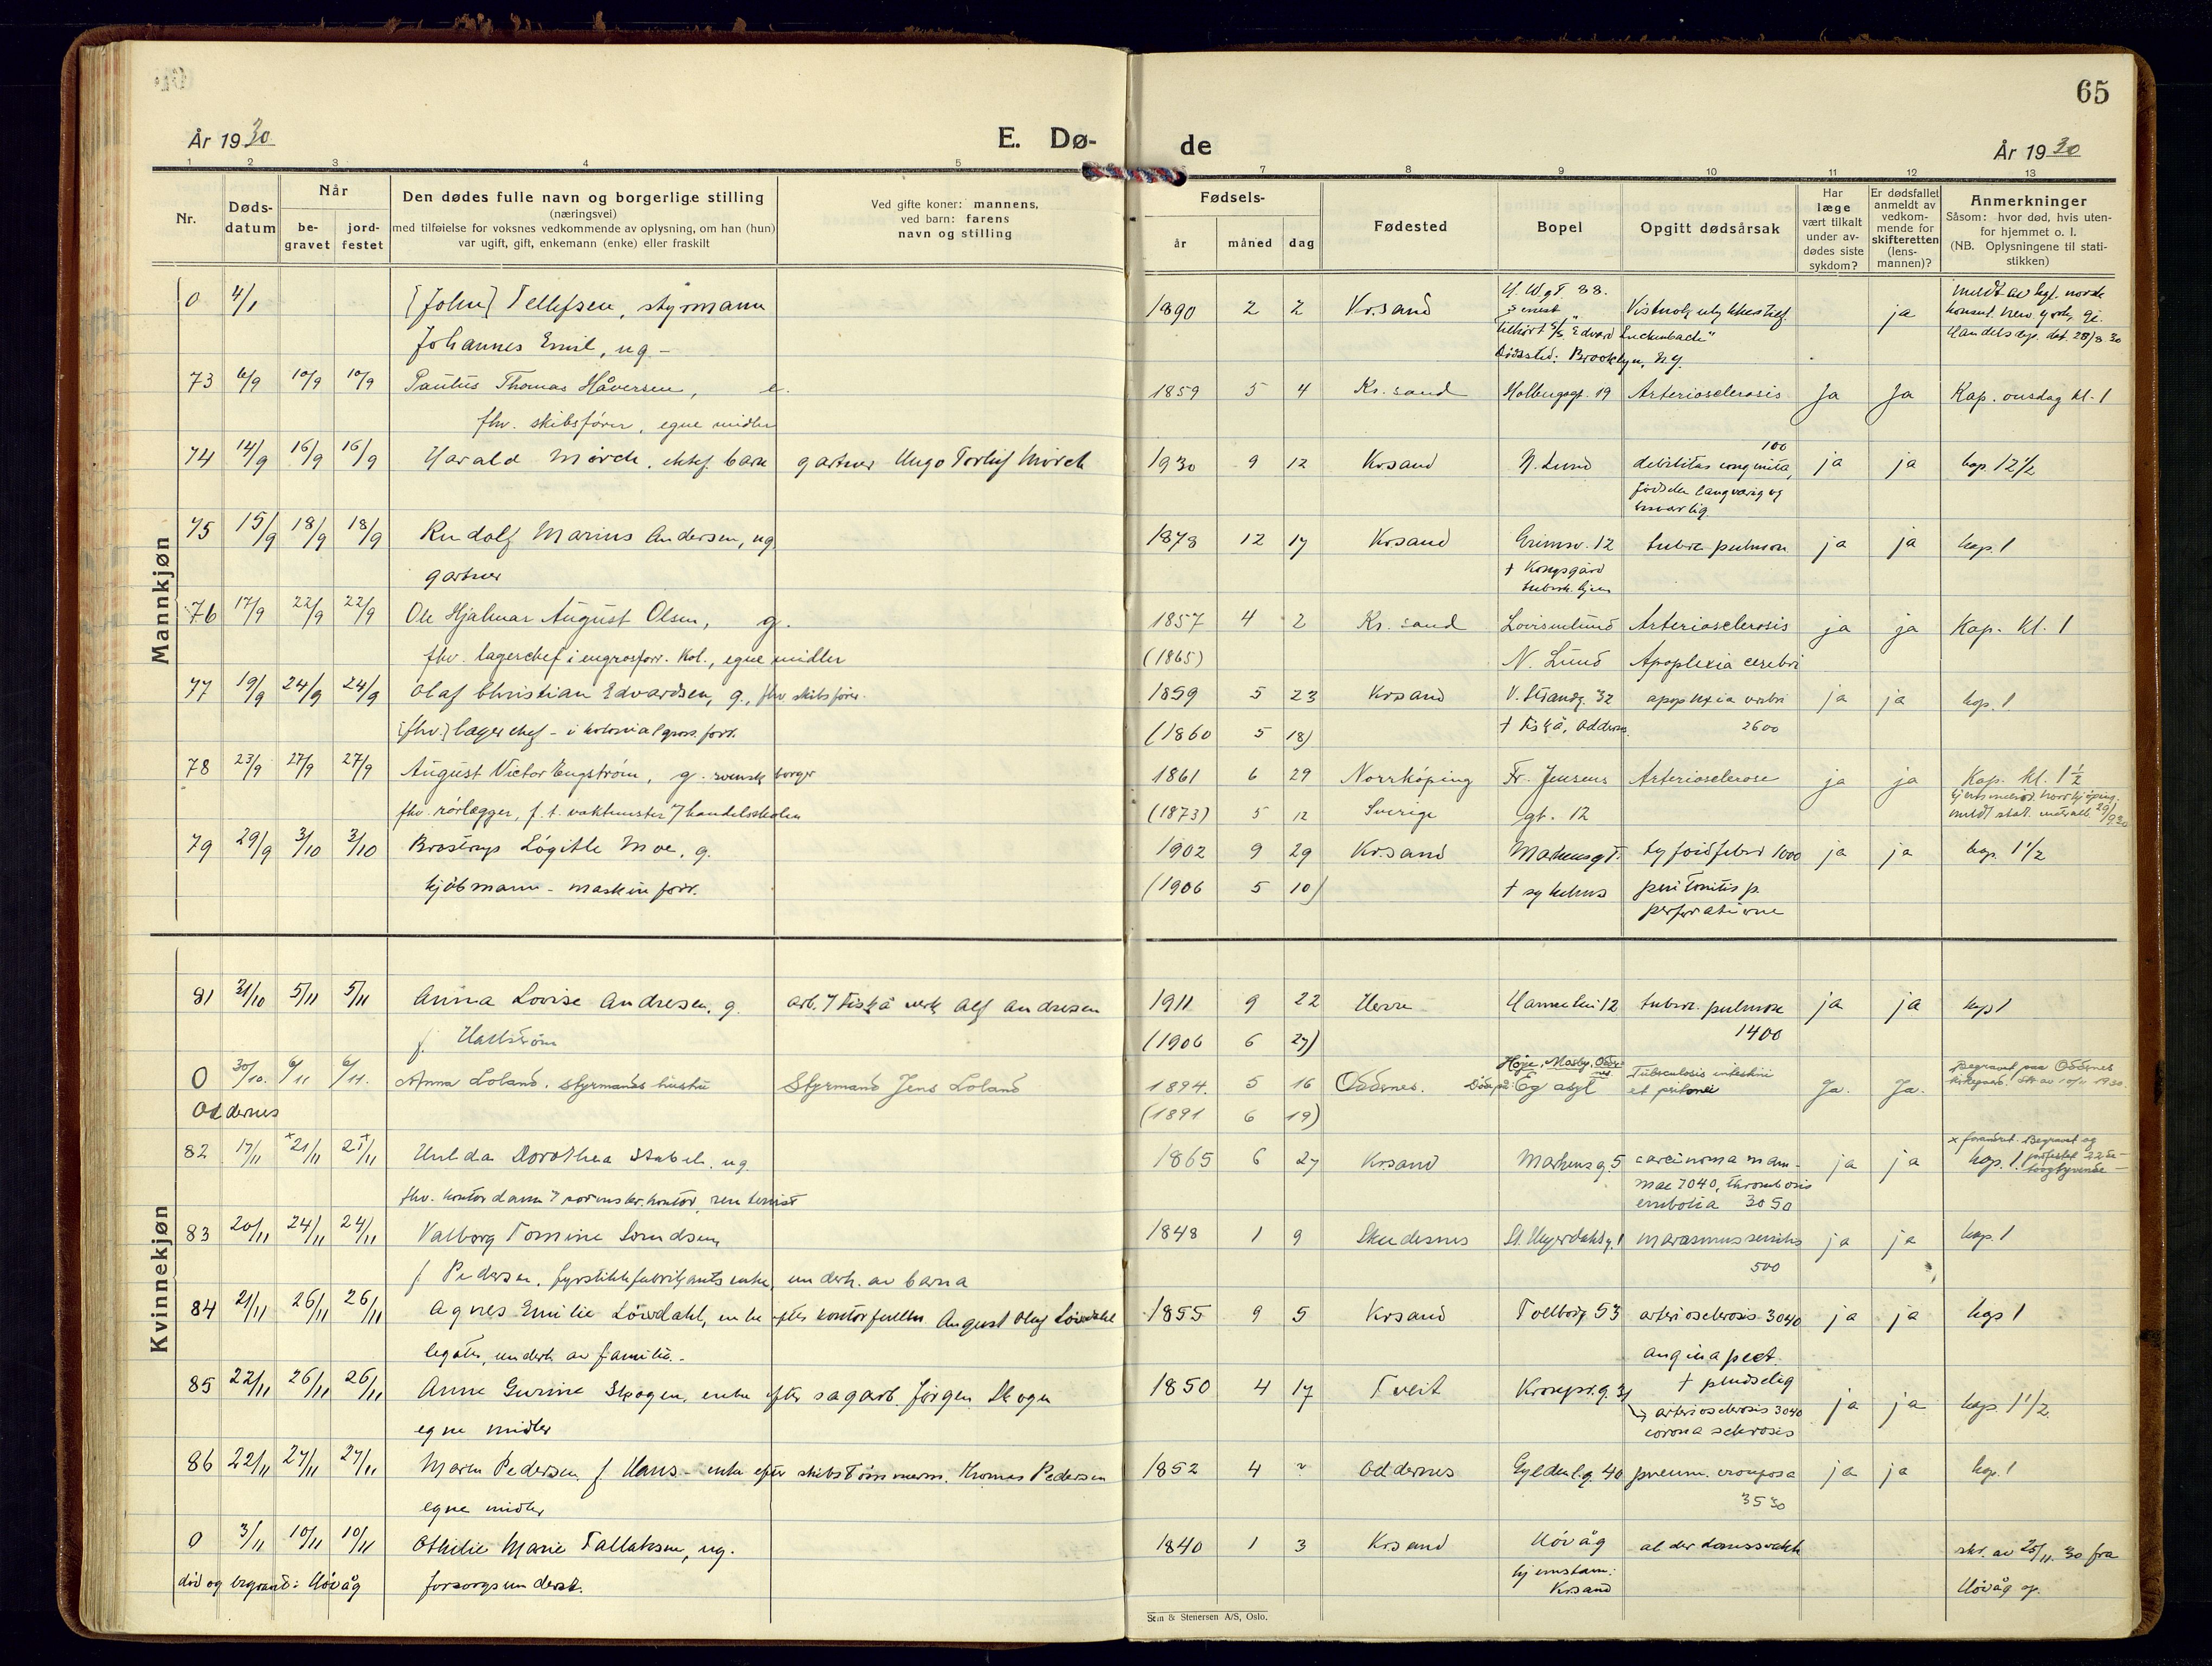 65
År 1930
E. Dø-
de
År 1930
1 2 3 4 5 7 8 9 10 11 12 13
Nr.
Døds-
datum
Når
be-
gravet
jord-
festet
Den dødes fulle navn og borgerlige stilling
(næringsvei)
med tilføielse for voksnes vedkommende av oplysning, om han (hun)
var ugift, gift, enkemann (enke) eller fraskilt
Ved gifte koner: mannens,
ved barn: farens
navn og stilling
Fødsels-
år måned dag
Fødested
Bopel
Opgitt dødsårsak
Har
læge
vært tilkalt
under av-
dødes siste
sykdom?
Er dødsfallet
anmeldt av
vedkom-
mende for
skifteretten
(lens-
mannen)?
Anmerkninger
Såsom: hvor død, hvis uten-
for hjemmet o. l.
(NB. Oplysningene til stati-
stikken)
Mannkjøn
0 4/1 [John] Tellefsen, styrmann 1890 2 2 Kr.sand H. Wgt. 38. ja
Johannes Emil, ug -
senest
tilhørt S/S "Edward Luckenbach"
Dødssted: Brooklyn, N.Y.
73 6/9 10/9 10/9 Paulus Thomas Håversen, e. 1859 5 4 Kr.sand Holbergsgt. 19 Arteriosclerosis Ja Ja Kap. onsdag kl. 1
fhv. skibsfører, egne midler
74 14/9 16/9 16/9 Harald Mørch, ektef. barn gartner Hugo Torleif Mørch 1930 9 12 Krsand N. Lund debilitas congenita, 100 ja ja kap. 12½
fødselen langvarig og
besværlig
75 15/9 18/9 18/9 Rudolf Marius Andersen, ug 1878 12 17 Krsand Grimsv. 12 tuberc pulmon ja ja kap. 1
gartner
† Kongsgård
tuberk. hjem
76 17/9 22/9 22/9 Ole Hjalmar August Olsen, g. 1857 4 2 Kr.sand Lovisenlund Arteriosclerosis ja ja Kap. kl. 1
fhv. lagerchef i engrosforr. Kol., egne midler (1865) N. Lund Apoplexia cerebri
77 19/9 24/9 24/9 Olaf Christian Edvardsen, g., fhv. skibsfører. 1859 5 23 Krsand V. Strandg. 32 apoplexia cerebri ja ja kap. 1
[fhv.] lagerchef - i kolonial gross. forr. (1860 5 18) † Fiskå, Oddernes. 2600
78 23/9 27/9 27/9 August Victor Engstrøm, g. svensk borger 1861 6 29 Norrköping Fr. Jensens Arteriosclerose ja ja Kap. kl. 1½
fhv. rørlegger, f. t. vaktmester v/ handelsskolen (1873) 5 12 Sverige gt. 12
79 29/9 3/10 3/10 Moe, g. 1902 9 29 Kr.sand Markensgt. tyfoidfeber 1000 ja ja kap. 1½
kjøbmann - maskinforr. (1906 5 10) † sykehus peritonitis p.
perforatione
Kvinnekjøn
81 31/10 5/11 5/11 Anna Lovise Andresen, g. arb. v/ Fiskå verk Alf Andresen 1911 9 22 Herre 12 tuberc. pulmon ja ja kap 1
f. Hallstrøm (1906 6 27) 1400
0 30/10. 6/11 6/11. Anna Loland. Styrmands hustru Styrmand Jens Loland 1894. 5 16 Oddernes. Høje, Mosby, Oddernes Tuberculosis intestini Ja. Ja. Begravet paa Oddernes
Død på: Eg asyl et peritonei kirkegaard. Skr av 10/11 1930.
Oddernes (1891 6 19)
82 17/11 x21/11 21/11 Hulda Dorothea Stabel, ug 1865 6 27 Krsand Markensg 5 carcinoma mam- ja ja kap. 1.
x forandret. Begravet og
jordfestet 22de -
fhv. kontordame v/ sorenskr.kontor, rentenist mae 7040, thrombosis
embolia 3050
83 20/11 24/11 24/11 Valborg Tomine Sundsen, 1848 1 9 Skudesnes St. Heyerdahlsg. 1 marasmus senilis ja ja kap. 1
f Pedersen, fyrstikkfabrikants enke, underh. av barna 500
84 21/11 26/11 26/11 Agnes Emilie Løvdahl, enke efter kontorfullm. August Oluf Løvdahl 1855 9 5 Krsand Tollbodg 53 arteriosclerosis 3040 ja ja kap 1
legater, underh. av familie. - angina pect.
85 22/11 26/11 26/11 Anne Gurine Skogen, enke efter sagarb. Jørgen Skogen 1850 4 17 Tveit Kronpr.g. 31 † plutselig ja ja kap. 1½
egne midler arteriosclerosis 3040
corona sclerosis
86 22/11 27/11 27/11 Maren Pedersen f Hans - enke efter skibstømmerm. Thomas Pedersen 1852 4 ? Oddernes Gyldenl.g. 40 pneum. crouposa ja ja kap. 1
egne midler 3530
0 3/11 10/11 10/11 Othilie Marie Tallaksen, ug. 1840 1 3 Krsand Høvåg alderdomssvakh skr. av 25/11 30 fra
død og begravet: Høvåg forsorgsunderst. hjemstavn: Høvåg sp.
Krsand
Sten & Stenersen A/S, Oslo.